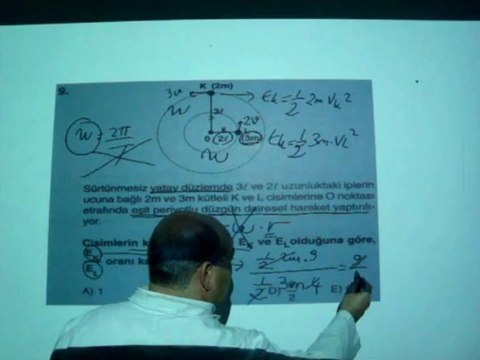 9.
K (2m)
3v
E_K = 1/2 2m V_K²
W
3ℓ
2v
W = 2π/T
O
2ℓ
3m
E_K = 1/2 3m · V_L²
W
Sürtünmesiz yatay düzlemde 3ℓ ve 2ℓ uzunluktaki iplerin
ucuna bağlı 2m ve 3m kütleli K ve L cisimlerine O noktası
etrafında eşit periyotlu düzgün dairesel hareket yaptırılı-
yor.
Cisimlerin E_K ve E_L olduğuna göre,
E_K
E_L
oranı
A) 1
D) 3/2
E)